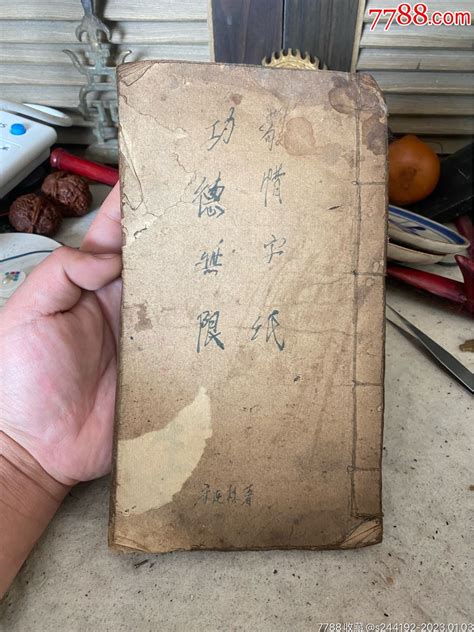 7788.com
敬惜字纸
功德無限
7788收藏@s244192-2023.01.03